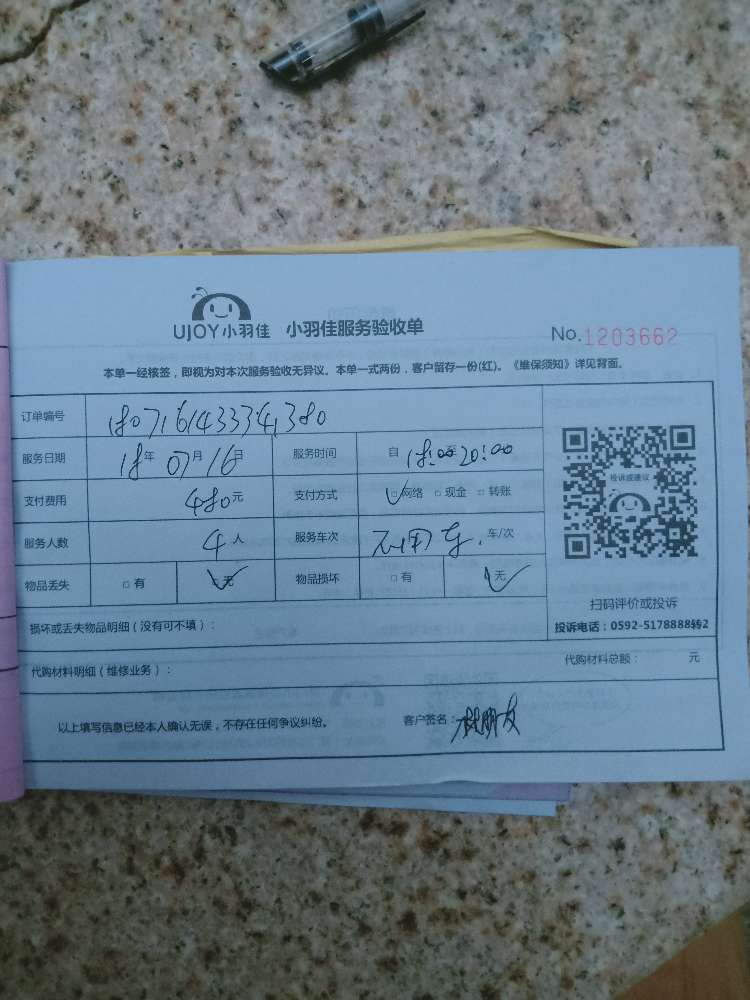 UJOY小羽佳 小羽佳服务验收单
No.1203662
本单一经核签，即视为对本次服务验收无异议。本单一式两份，客户留存一份(红)。《维保须知》详见背面。
订单编号 180716143334380
服务日期 18年07月16日 服务时间 自18:00至20:00
支付费用 480元 支付方式 □网络 □现金 □转账
服务人数 4人 服务车次 不用车. 车/次
物品丢失 □有 □无 物品损坏 □有 □无
投诉或建议
扫码评价或投诉
投诉电话：0592-5178888转2
损坏或丢失物品明细（没有可不填）：
代购材料明细（维修业务）： 代购材料总额： 元
以上填写信息已经本人确认无误，不存在任何争议纠纷。 客户签名：